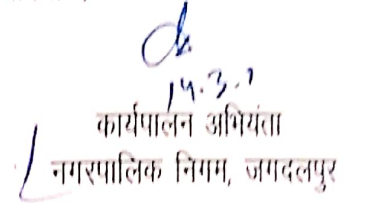 14.3.
कार्यपालन अभियंता
नगरपालिक निगम, जगदलपुर